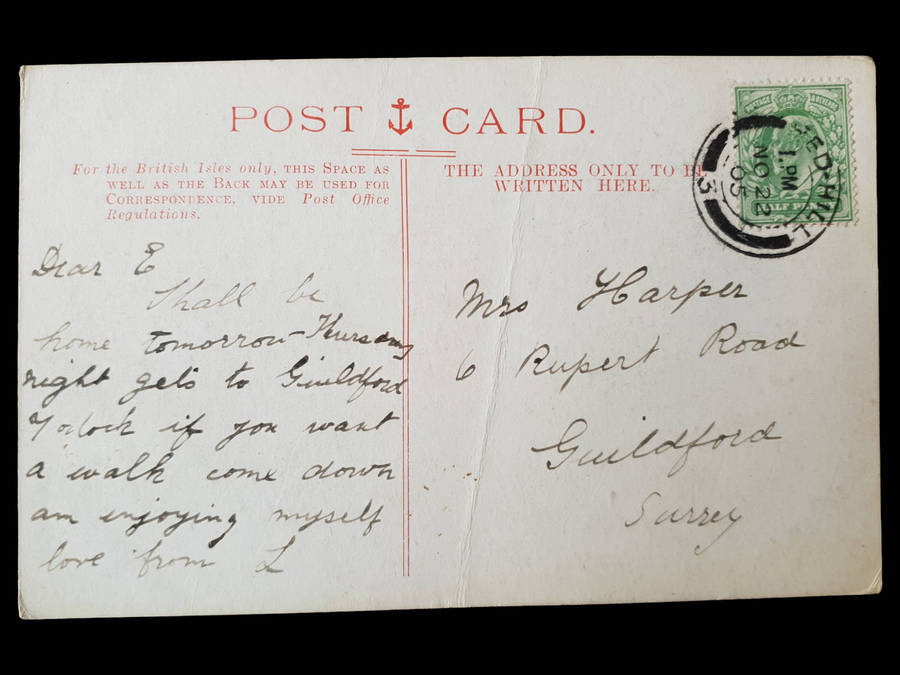 POST CARD.
For the British Isles only, THIS SPACE AS
WELL AS THE BACK MAY BE USED FOR
CORRESPONDENCE, VIDE Post Office
Regulations.
THE ADDRESS ONLY TO BE
WRITTEN HERE.
POSTAGE & REVENUE
HALF PENNY
REDHILL
1. PM
NO 22
05
3
Dear E
Shall be
home tomorrow - Thursday
night gets to Guildford
7 oclock if you want
a walk come down
am enjoying myself
love from L
Mrs Harper
6 Rupert Road
Guildford
Surrey